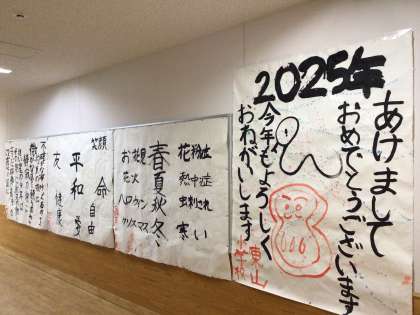 2025年
あけまして
おめでとうございます
今年もよろしく
おねがいします
東山
小学校
花粉症
熱中症
虫刺され
寒い
春夏秋冬
お花見
花火
ハロウィン
クリスマス
笑顔
命
自由
平和
愛
友
健康